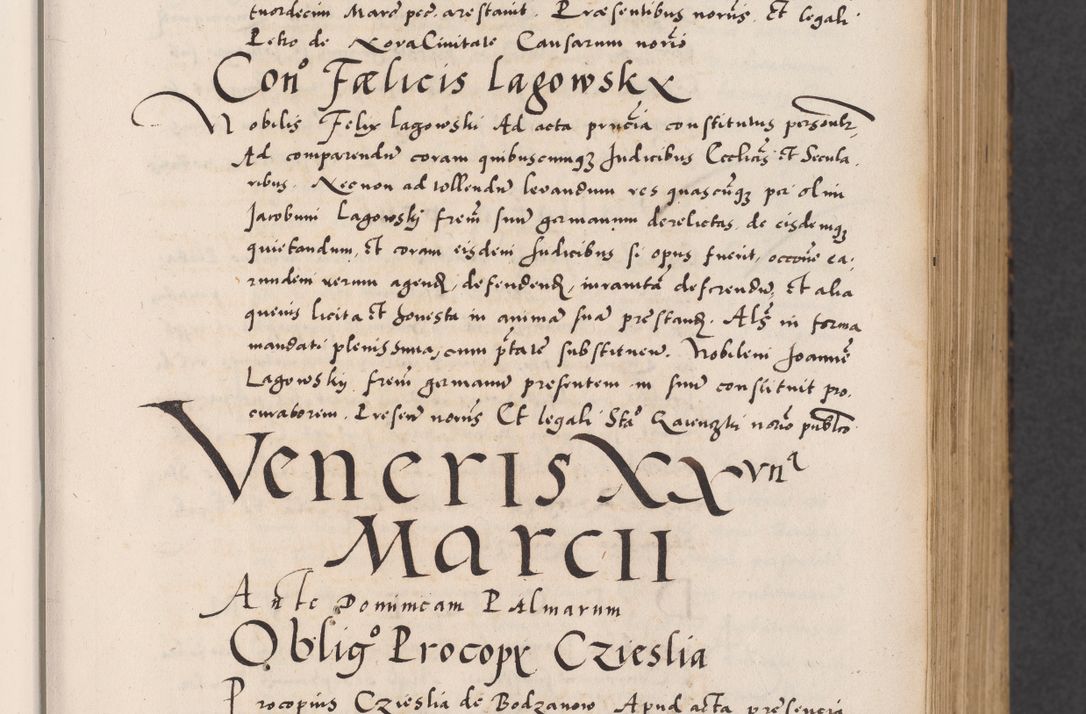 tuordecim Marc pec arestauit. Præsentibus norijs, Et legali
Petro de Nova Ciuitate Causarum norio
Con° Fælicis Lagowsky
Nobilis Felix Lagowski Ad acta prncia constitutus personlr,
Ad comparendu coram quibuscumqz Judicibus Ecclicis Et Secula,
ribus. Necnon ad tollendu levandum res quascuqz per olim
Jacobum Lagowskj frem suu germanum derelictas, de eisdemqz
quietandum, Et coram eisdem Judicibus si opus fuerit, occone ea,
rundem rerum agend, defendend, iuramta deferendu, Et alia
quevis licita Et honesta in anima sua prestand. Als in forma
mandati plenissima, cum ptate substituen. Nobilem Joanne
Lagowskij frem germanu presentem in suu constituit pro,
curatorem. Presen norijs Et legali Sta° norio publco
Veneris XXVIIa
Marcii
Ante Dominicam Palmarum
Oblig° Procopy Czieslia
Procopius Czieslia de Bodzanow Apud acta presencia